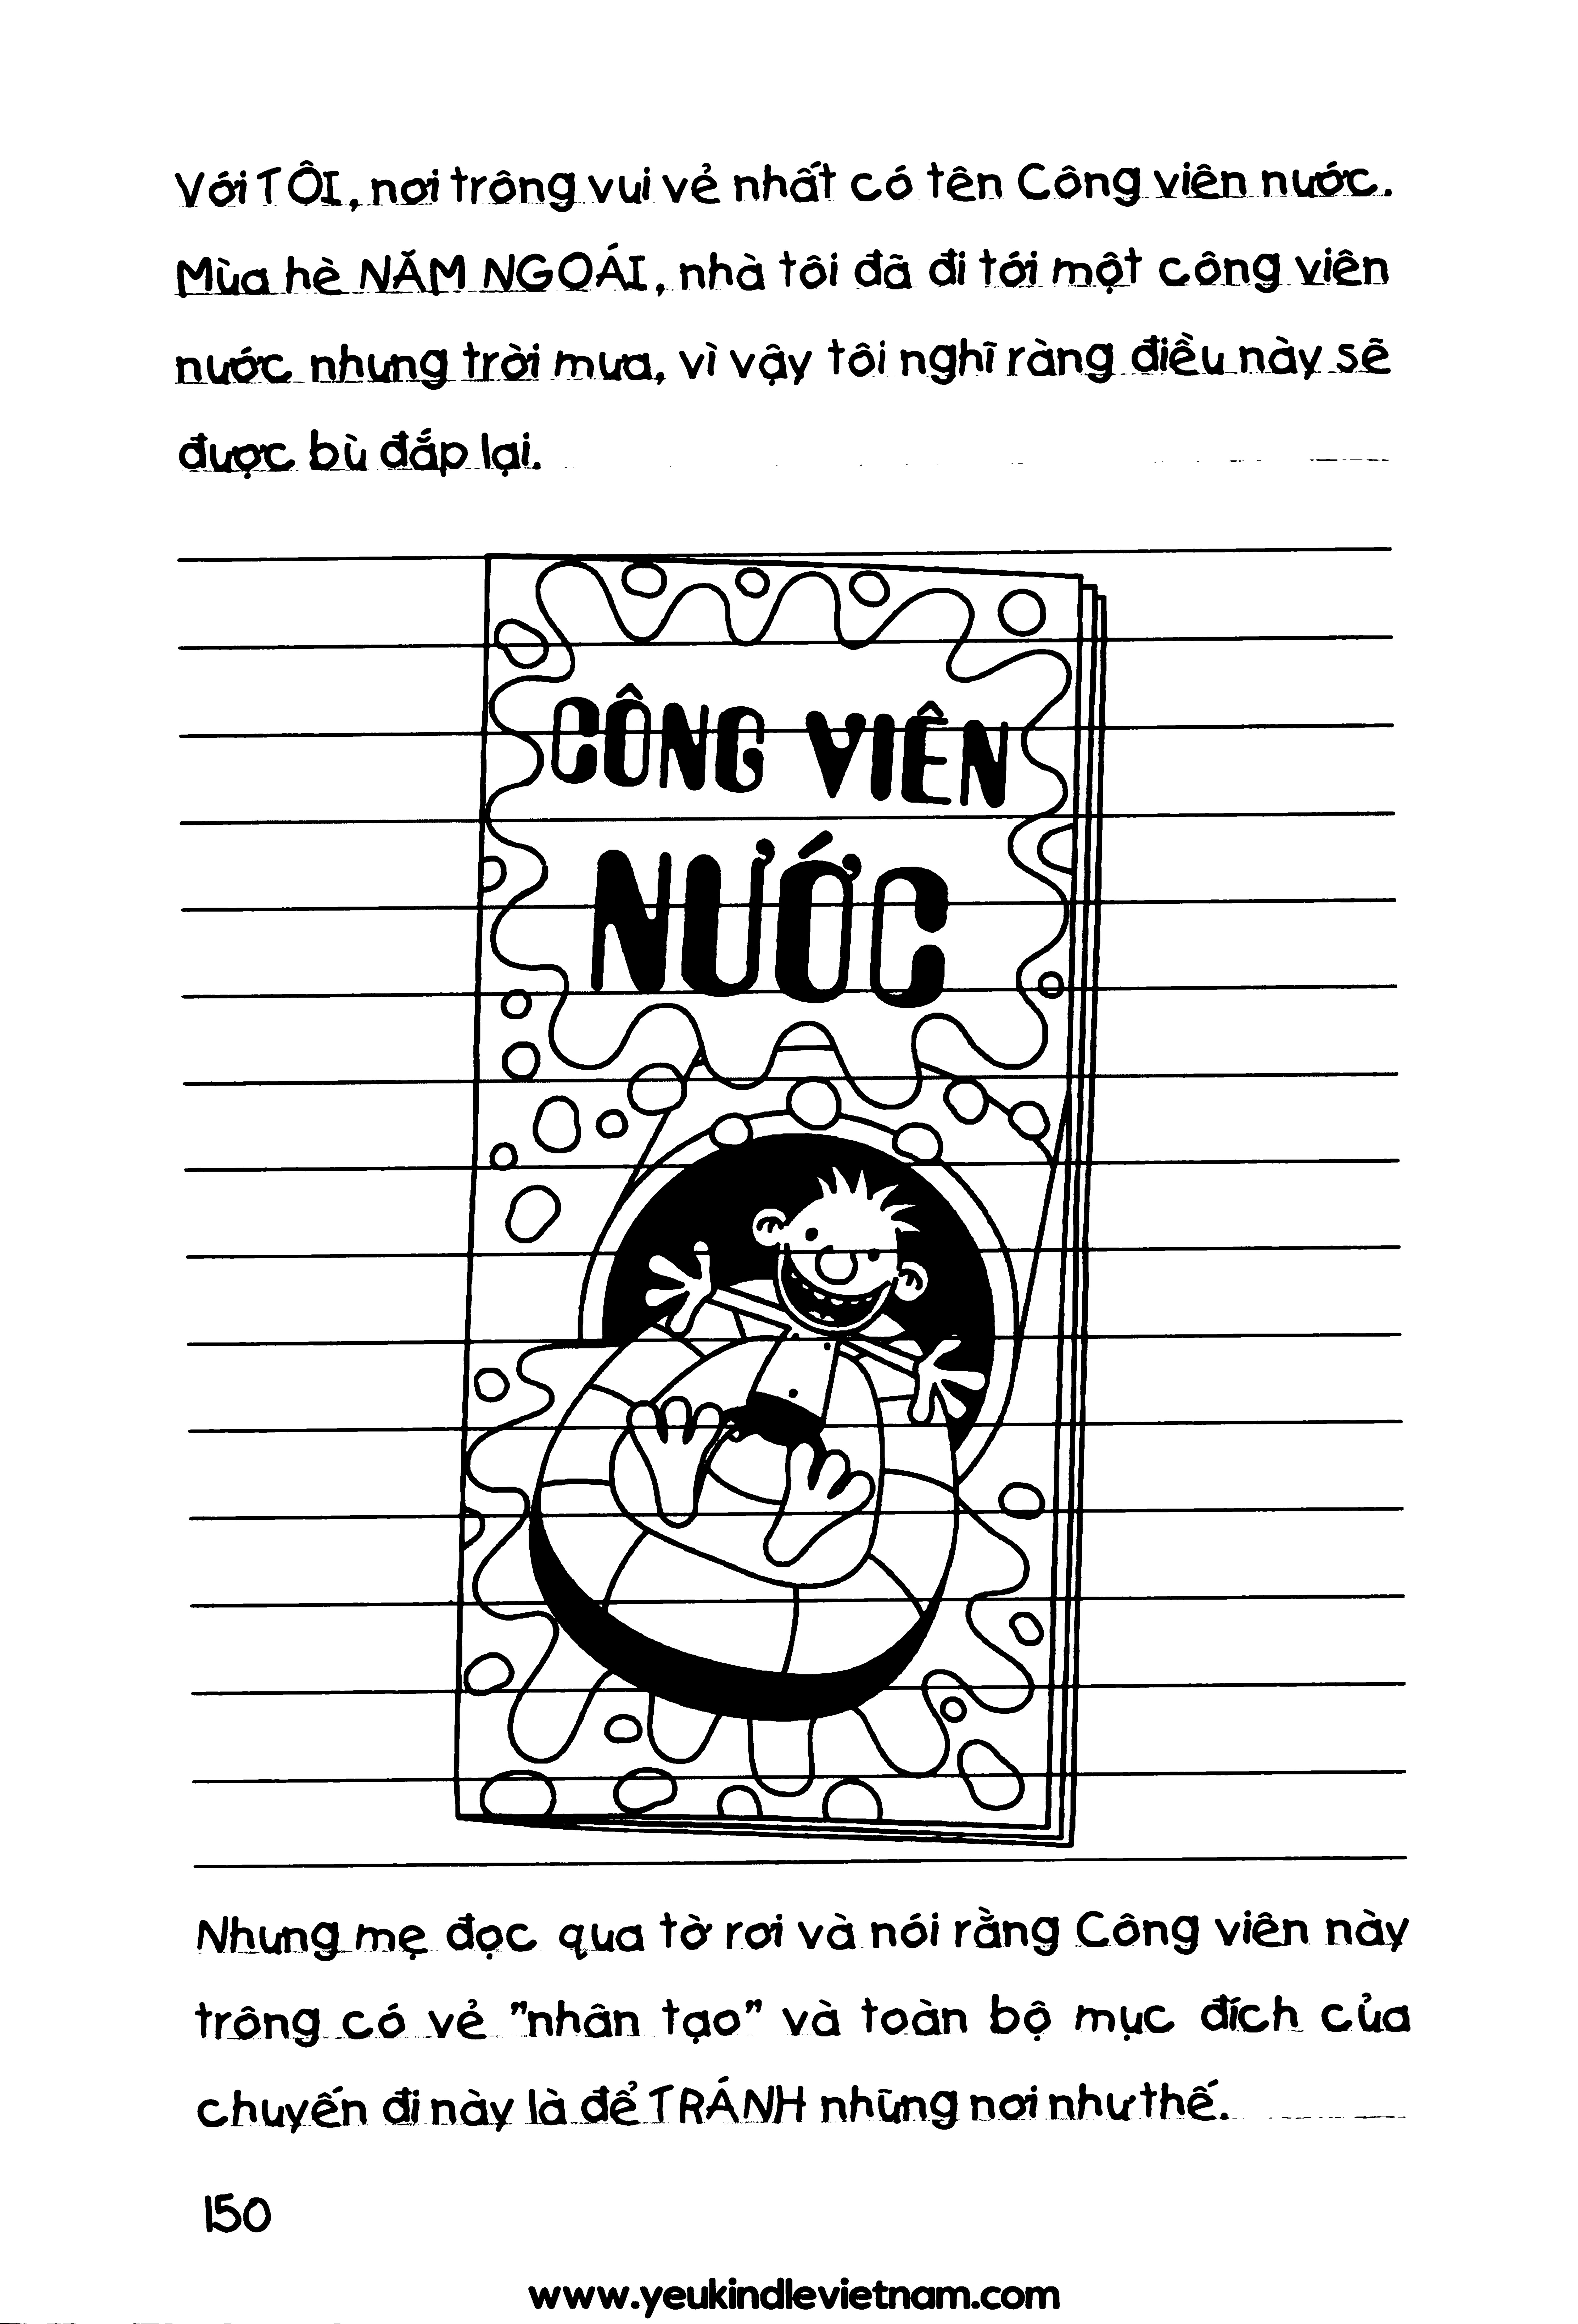 Với TÔI, nơi trông vui vẻ nhất có tên Công viên nước.
Mùa hè NĂM NGOÁI, nhà tôi đã đi tới một công viên
nước nhưng trời mưa, vì vậy tôi nghĩ ràng điều này sẽ
được bù đắp lại.
CÔNG VIÊN
NƯỚC
Nhưng mẹ đọc qua tờ rơi và nói rằng Công viên này
trông có vẻ "nhân tạo" và toàn bộ mục đích của
chuyến đi này là để TRÁNH những nơi như thế.
150
www.yeukindlevietnam.com